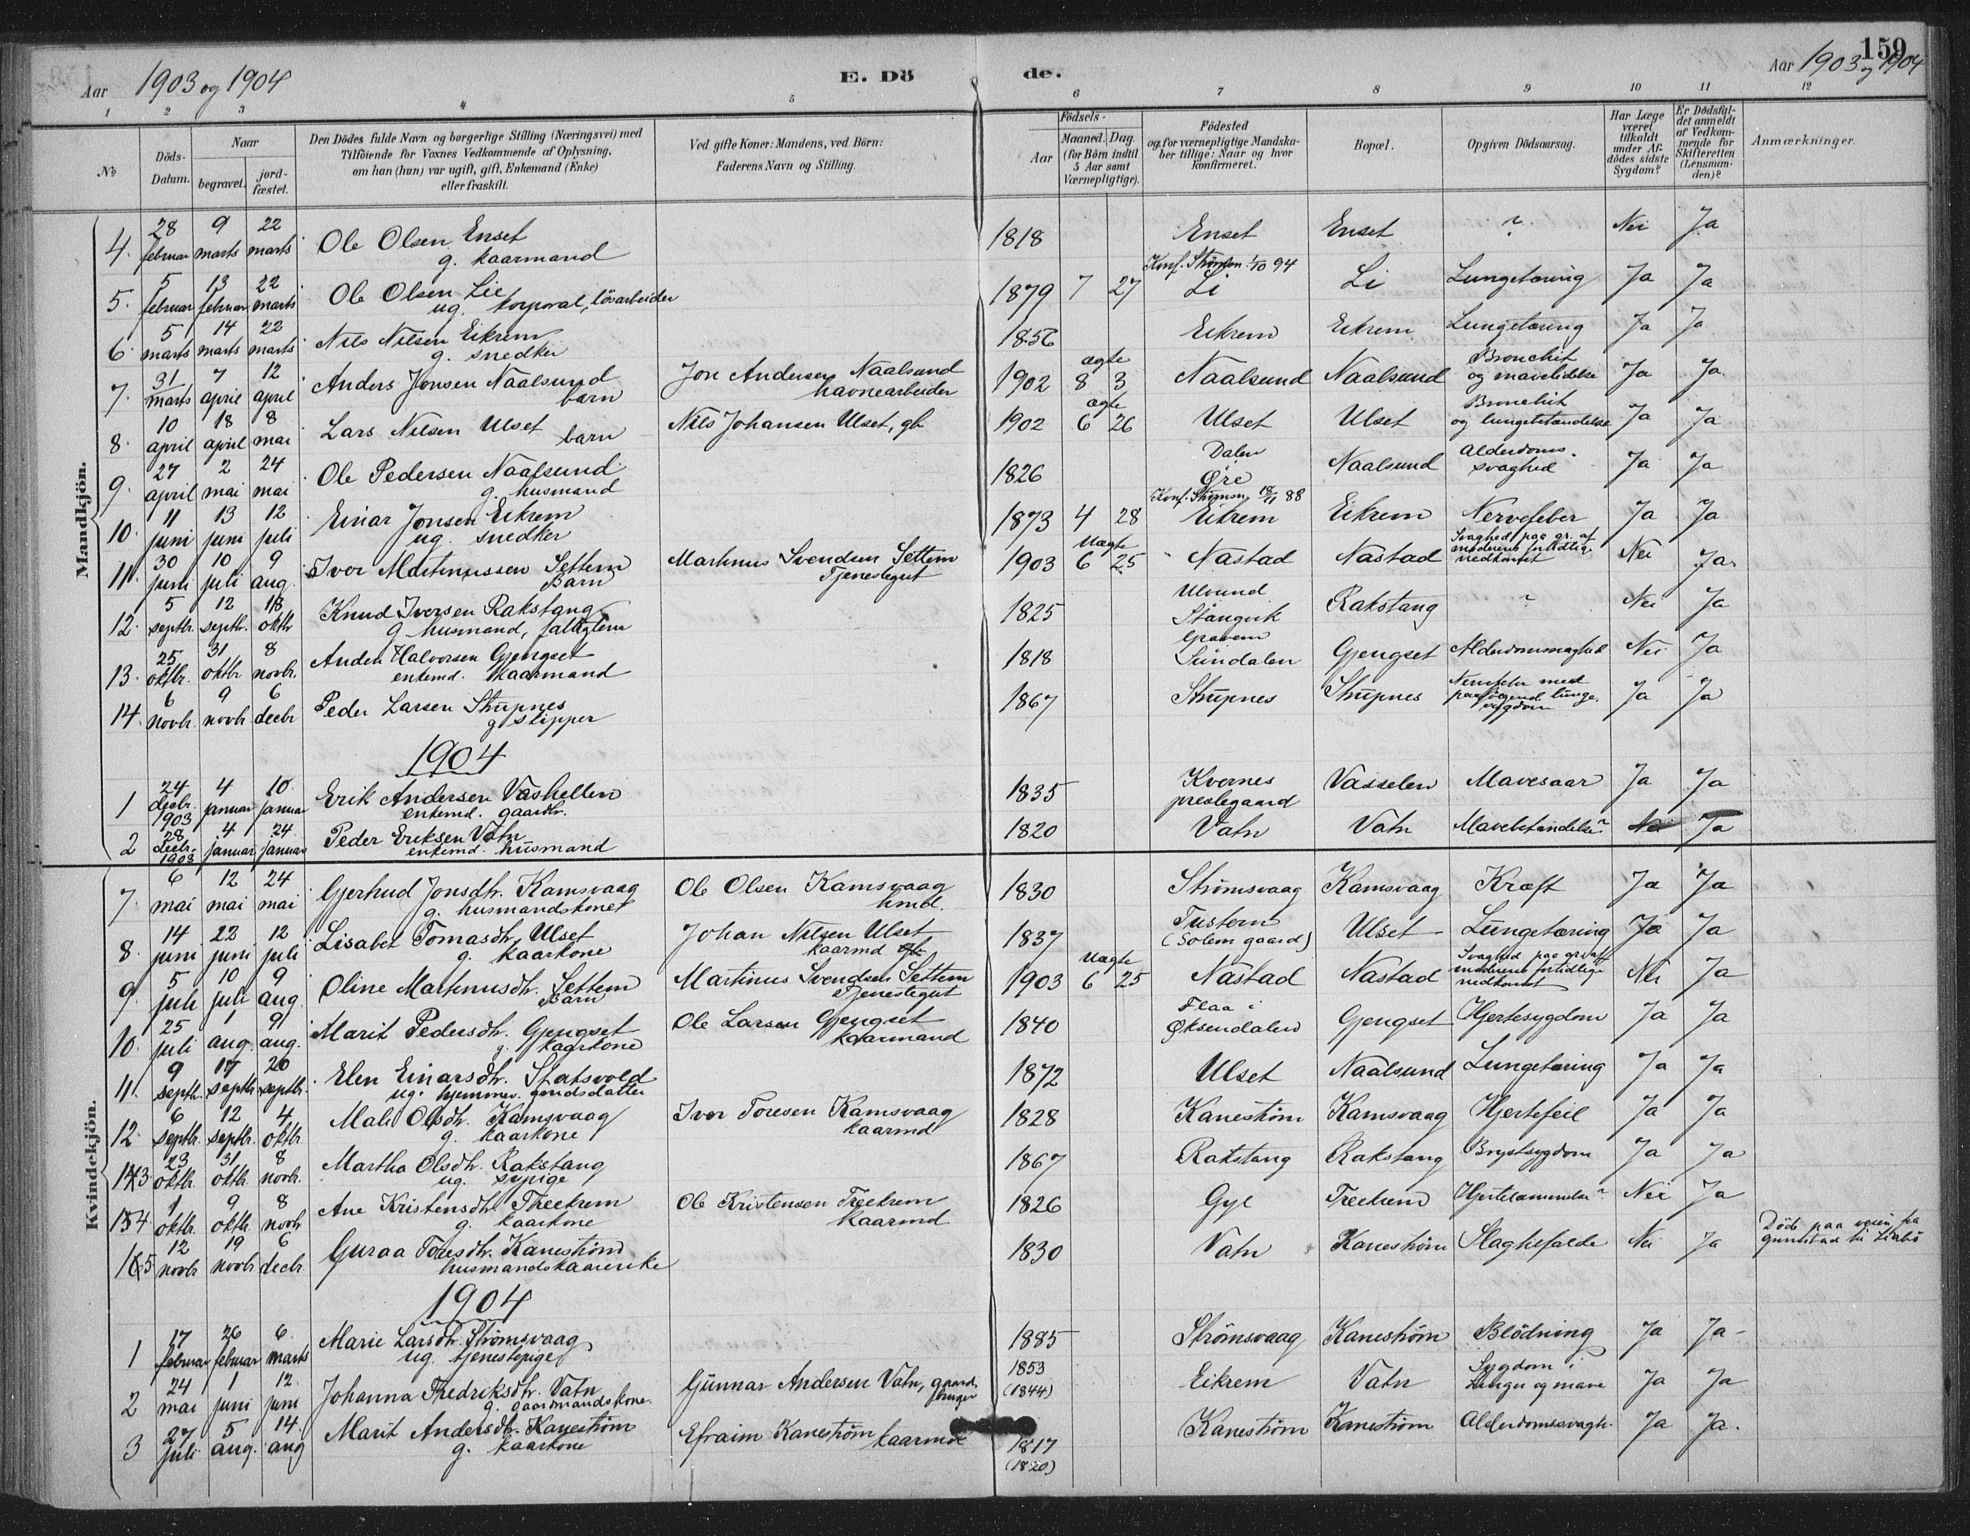 Aar 1903 og 1904 E. Dö de. Aar 1903 og 1904 159
1 2 3 4 5 6 7 8 9 10 11 12
No Döds-Datum. Naar begravet. jordfæstet. Den Dödes fulde Navn og borgerlige Stilling (Næringsvei) med Tilföiende for Voxnes Vedkommende af Oplysning, om han (hun) var ugift, gift, Enkemand (Enke) eller fraskilt. Ved gifte Koner: Mandens, ved Börn: Faderens Navn og Stilling. Födsels- Aar Maaned. Dag (for Börn indtil 5 Aar samt Værnepligtige). Födested og for værnepligtige Mandskaber tillige: Naar og hvor konfirmeret. Bopæl. Opgiven Dödsaarsag. Har Læge været tilkaldt under Afdödes sidste Sygdom? Er Dödsfaldet anmeldt af Vedkommende for Skifteretten (Lensmanden)? Anmærkninger.
Mandkjön.
4. 28 februar 9 marts 22 marts Ole Olsen Enset g. kaarmand 1818 Enset Enset ? Nei Ja
5. 5 februar 13 februar 22 marts Ole Olsen Lie ug. korporal, løsarbeider 1879 7 27 Konf. 1/10 94 Li Li Lungetæring Ja Ja
6. 5 marts 14 marts 22 marts Nils Nilsen Eikrem g. snedker 1856 Eikrem Eikrem Lungetæring Ja Ja
7. 31 marts 7 april 12 april Anders Jonsen Naalsund barn Jon Andersen Naalsund havnearbeider 1902 ægte 8 3 Naalsund Naalsund Bronchit og mavelidelse Ja Ja
8. 10 april 18 april 8 mai Lars Nilsen Ulset barn Nils Johansen Ulset, gb 1902 ægte 6 26 Ulset Ulset Bronchit og lungebetændelse Ja Ja
9. 27 april 2 mai 24 mai Ole Pedersen Naalsund g. husmand 1826 Dalen Øre Naalsund Alderdoms-svaghed Ja Ja
10. 11 juni 13 juni 12 juli Einar Jonsen Eikrem ug. snedker 1873 4 28 Konf. 88 Eikrem Eikrem Nervefeber Ja Ja
11. 30 juni 10 juli 9 aug. Iver Martinussen Settem Barn Martinus Svendsen Settem Tjenestegut 1903 Uægte 6 25 Nastad Nastad Svaghed paa gr. af moderens fortidlige nedkomst Nei Ja
12. 5 septbr. 12 septbr. 18 oktbr Knud Iversen Rakstang g. husmand, 1825 Ulvund Stangvik Rakstang ? Nei Ja
13. 25 oktbr. 31 oktbr 8 novbr. Anders Halvorsen Gjengset enkemd. kaarmand 1818 Graven Sundalen Gjengset Alderdomssvaghed Nei Ja
14. 6 novbr. 9 novbr 6 decbr Peder Larsen Strupnes g skipper 1867 Strupnes Strupnes Nervefeber med paafølgend lunge-sygdom Ja Ja
1904
1 24 decbr. 1903 4 januar 10 januar Erik Andersen Vashellen enkemd. gaardbr. 1835 Kvernes prestegaard Vasselen Mavesaar Ja Ja
2 28 decbr. 1903 4 januar 24 januar Peder Eriksen Vatn enkemd. husmand 1820 Vatn Vatn Mavebetændelse? Nei Ja
Kvindekjön.
7. 6 mai 12 mai 24 mai Gjertrud Jonsdtr. Kamsvaag g. husmandskone Ole Olsen Kamsvaag hmd. 1830 Strømsvaag Kamsvaag Kræft Ja Ja
8. 14 juni 22 juni 12 juli Lisabet Tomasdtr. Ulset g. kaarkone Johan Nilsen Ulset kaarmd 1837 Tustern (Solem gaard) Ulset Lungetæring Ja Ja
9. 5 juli 10 juli 9 aug. Oline Martinusdtr. Settem Barn Martinus Svendsen Settem Tjenestegut 1903 Uægte 6 25 Nastad Nastad Svaghed paa gr. af moderens fortidlige nedkomst Nei Ja
10. 25 juli 1 aug. 9 aug. Marit Pedersdtr. Gjengset g. kaarkone Ole Larsen Gjengset kaarmand 1840 Flaa i Øksendalen Gjengset Hjertesygdom Ja Ja
11. 9 septbr. 17 septbr 20 septbr. Elen Einarsdtr. Statsvold ug. hjemmev. gaardsdatter 1872 Ulset Naalsund Lungetæring Ja Ja
12. 6 septbr. 12 septbr. 4 oktbr Mali Olsdtr. Kamsvaag g. kaarkone Iver Toresen Kamsvaag kaarmd 1828 Kanestrøm Kamsvaag Hjertefeil Ja Ja
13 23 oktbr. 31 oktbr. 8 novbr. Martha Olsdtr. Rakstang ug. sypige 1867 Rakstang Rakstang Brystsygdom Ja Ja
14. 1 oktbr. 9 oktbr. 8 novbr Ane Kristensdtr. Treekrem g. kaarkone Ole Kristensen Treekrem kaarmd 1826 Gyl Treekrem Nei Ja
15 12 novbr 19 novbr 6 decbr. Guraa Toresdtr. Kanestrøm husmandskaarenke 1830 Vatn Kanestrøm Slagtilfælde Nei Ja Døde paa veien fra til
1904
1 17 februar 26 februar 6 marts Marie Larsdtr. Strømsvaag ug. tjenestepige 1885 Strømsvaag Kanestrøm Blødning Ja Ja
2 24 mai 1 juni 12 juni Johanna Fredriksdtr. Vatn g. gaardmandskone. Gunnar Andersen Vatn, gaardbruger 1853 (1844) Eikrem Vatn Sygdom i Lunger og mave Ja Ja
3 27 juli 5 aug. 14 aug Marit Andersdtr. Kanestrøm g. kaarkone Efraim Kanestrøm kaarmd 1817 (1820) Kanestrøm Kanestrøm Alderdomssvagh. Ja Ja.